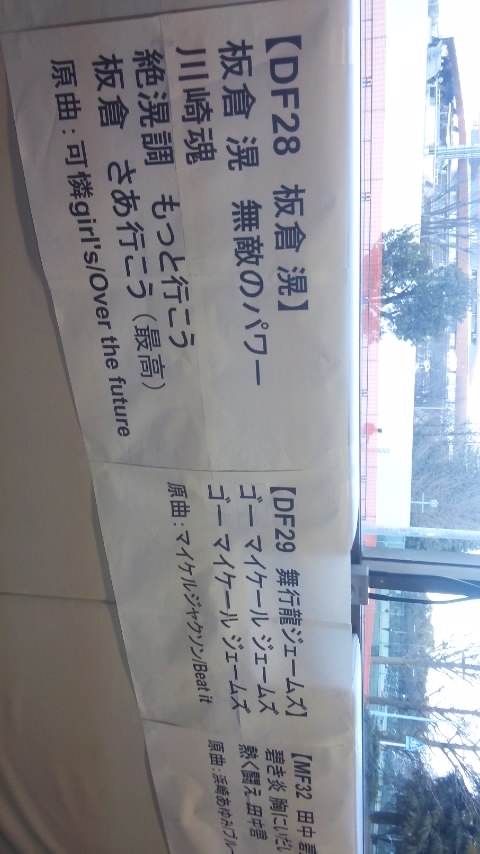 【DF28 板倉 滉】
板倉 滉 無敵のパワー
川崎魂
絶滉調 もっと行こう
板倉 さあ行こう（最高）
原曲：可憐girl's/Over the future
【DF29 舞行龍ジェームズ】
ゴー マイケール ジェームズ
ゴー マイケール ジェームズ
原曲：マイケルジャクソン/Beat it
【MF32 田中
碧き炎 胸にいだい
熱く闘え 田中碧
原曲：浜崎あゆみ/ブルー